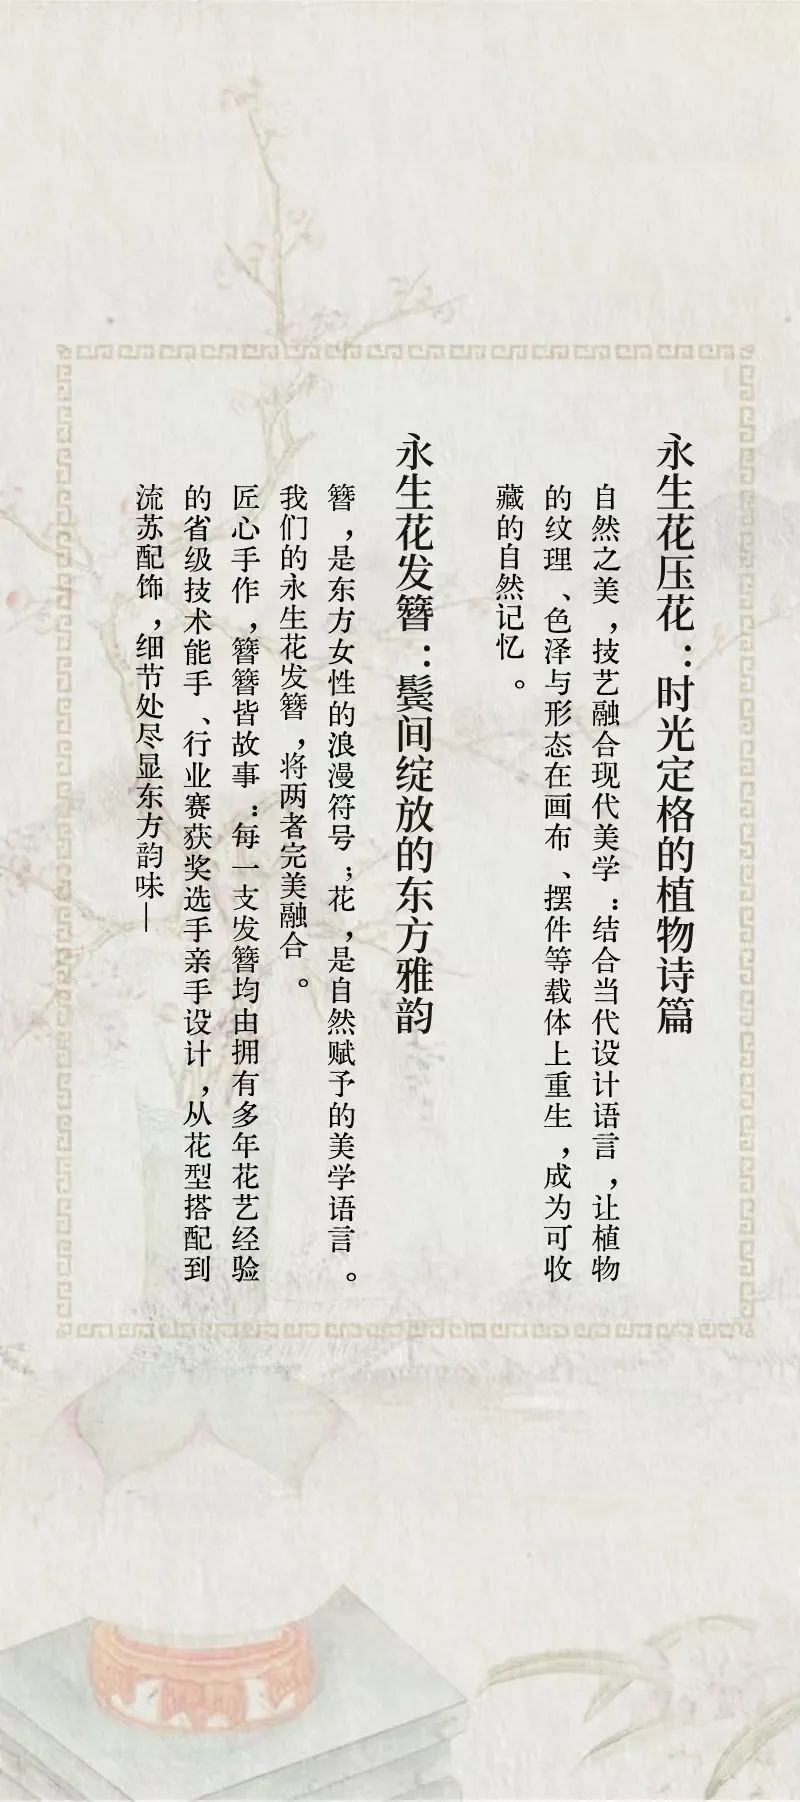 永生花压花：时光定格的植物诗篇
自然之美，技艺融合现代美学：结合当代设计语言，让植物
的纹理、色泽与形态在画布、摆件等载体上重生，成为可收
藏的自然记忆。
永生花发簪：鬓间绽放的东方雅韵
簪，是东方女性的浪漫符号；花，是自然赋予的美学语言。
我们的永生花发簪，将两者完美融合。
匠心手作，簪簪皆故事：每一支发簪均由拥有多年花艺经验
的省级技术能手、行业赛获奖选手亲手设计，从花型搭配到
流苏配饰，细节处尽显东方韵味—